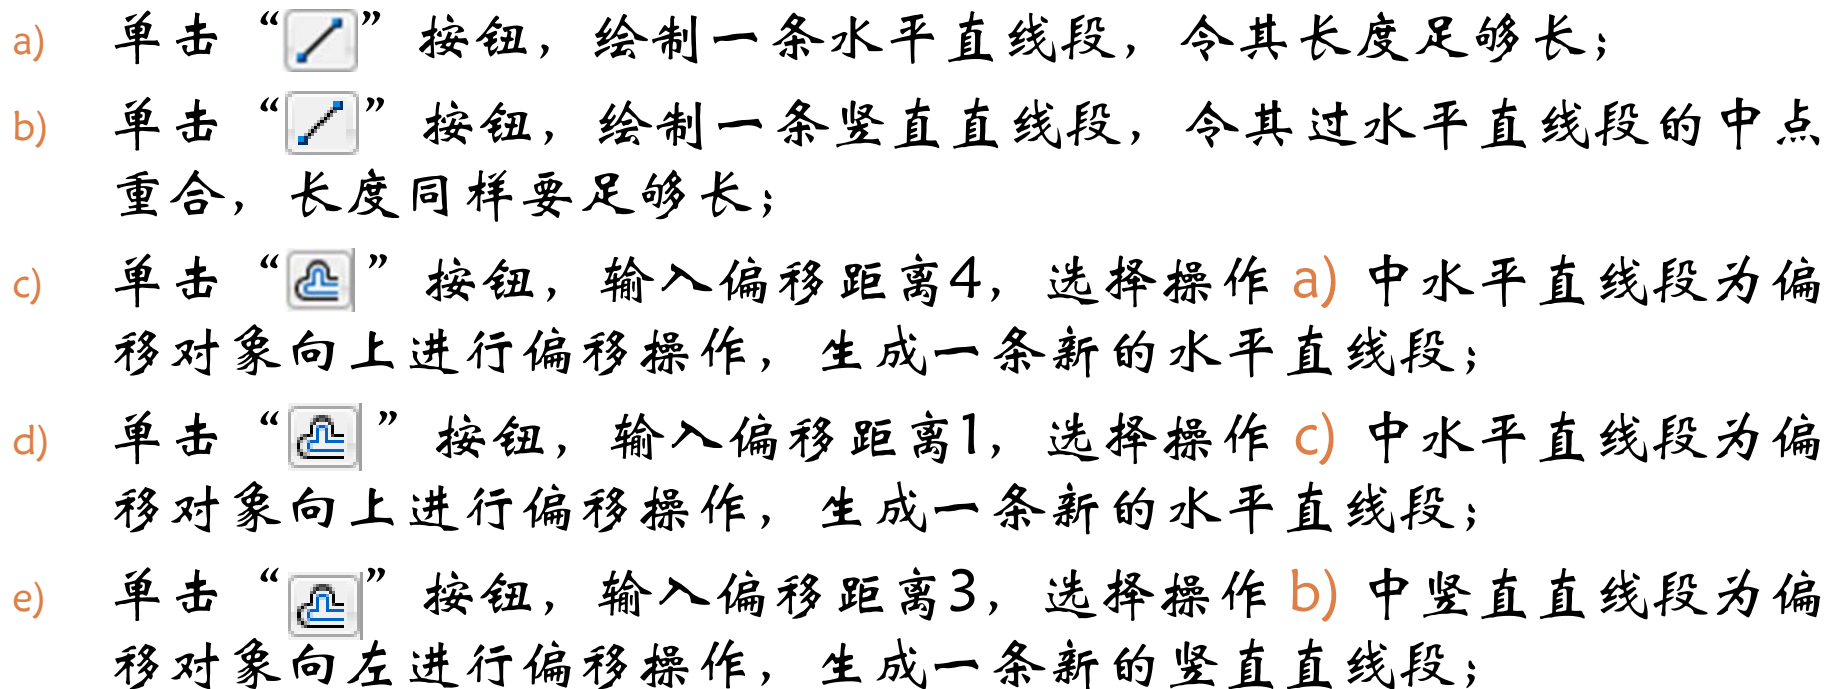 a) 单击“”按钮，绘制一条水平直线段，令其长度足够长；
b) 单击“”按钮，绘制一条竖直直线段，令其过水平直线段的中点
重合，长度同样要足够长；
c) 单击“”按钮，输入偏移距离4，选择操作 a) 中水平直线段为偏
移对象向上进行偏移操作，生成一条新的水平直线段；
d) 单击“”按钮，输入偏移距离1，选择操作 c) 中水平直线段为偏
移对象向上进行偏移操作，生成一条新的水平直线段；
e) 单击“”按钮，输入偏移距离3，选择操作 b) 中竖直直线段为偏
移对象向左进行偏移操作，生成一条新的竖直直线段；